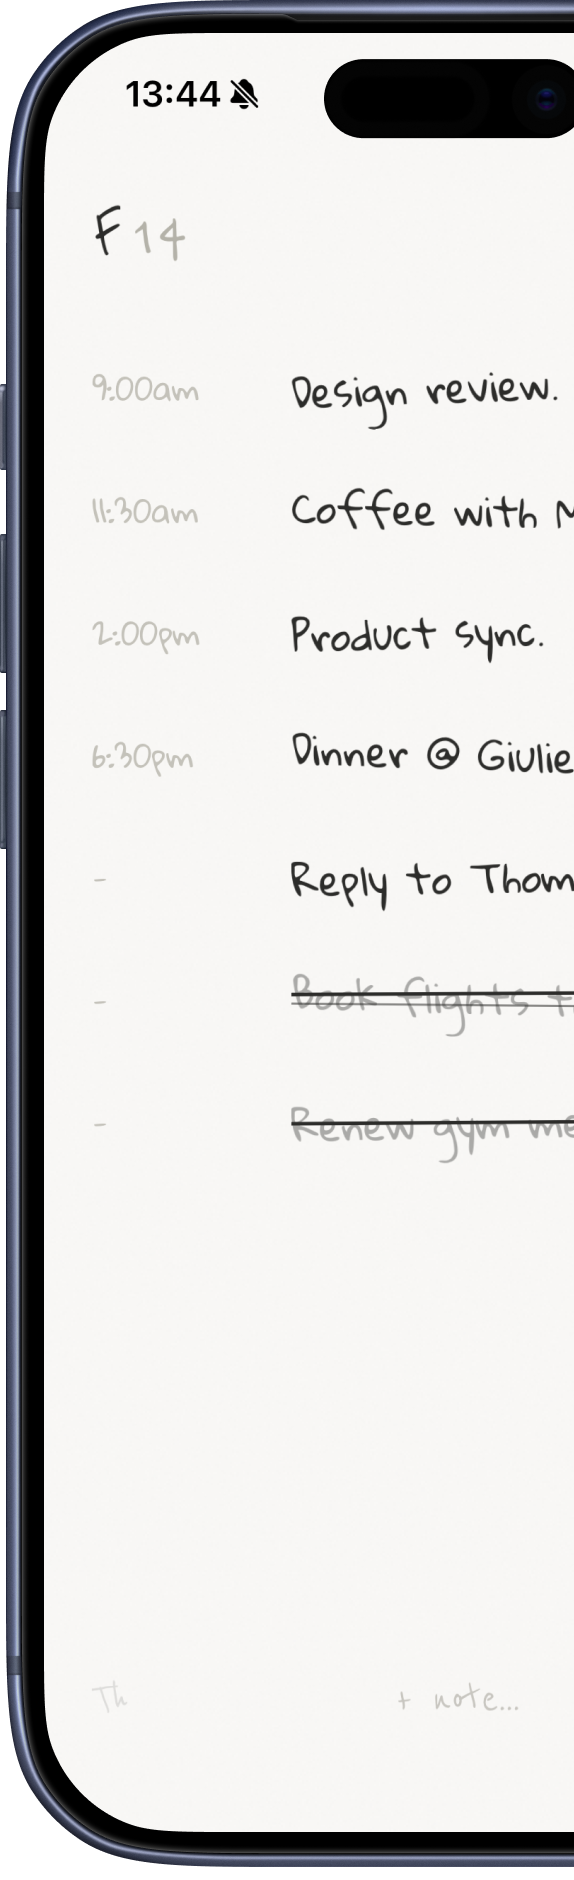 13:44
F 14
9:00am Design review.
11:30am Coffee with
2:00pm Product sync.
6:30pm Dinner @ Giulie
- Reply to Thom
- Book flights t
- Renew gym me
Th + note...